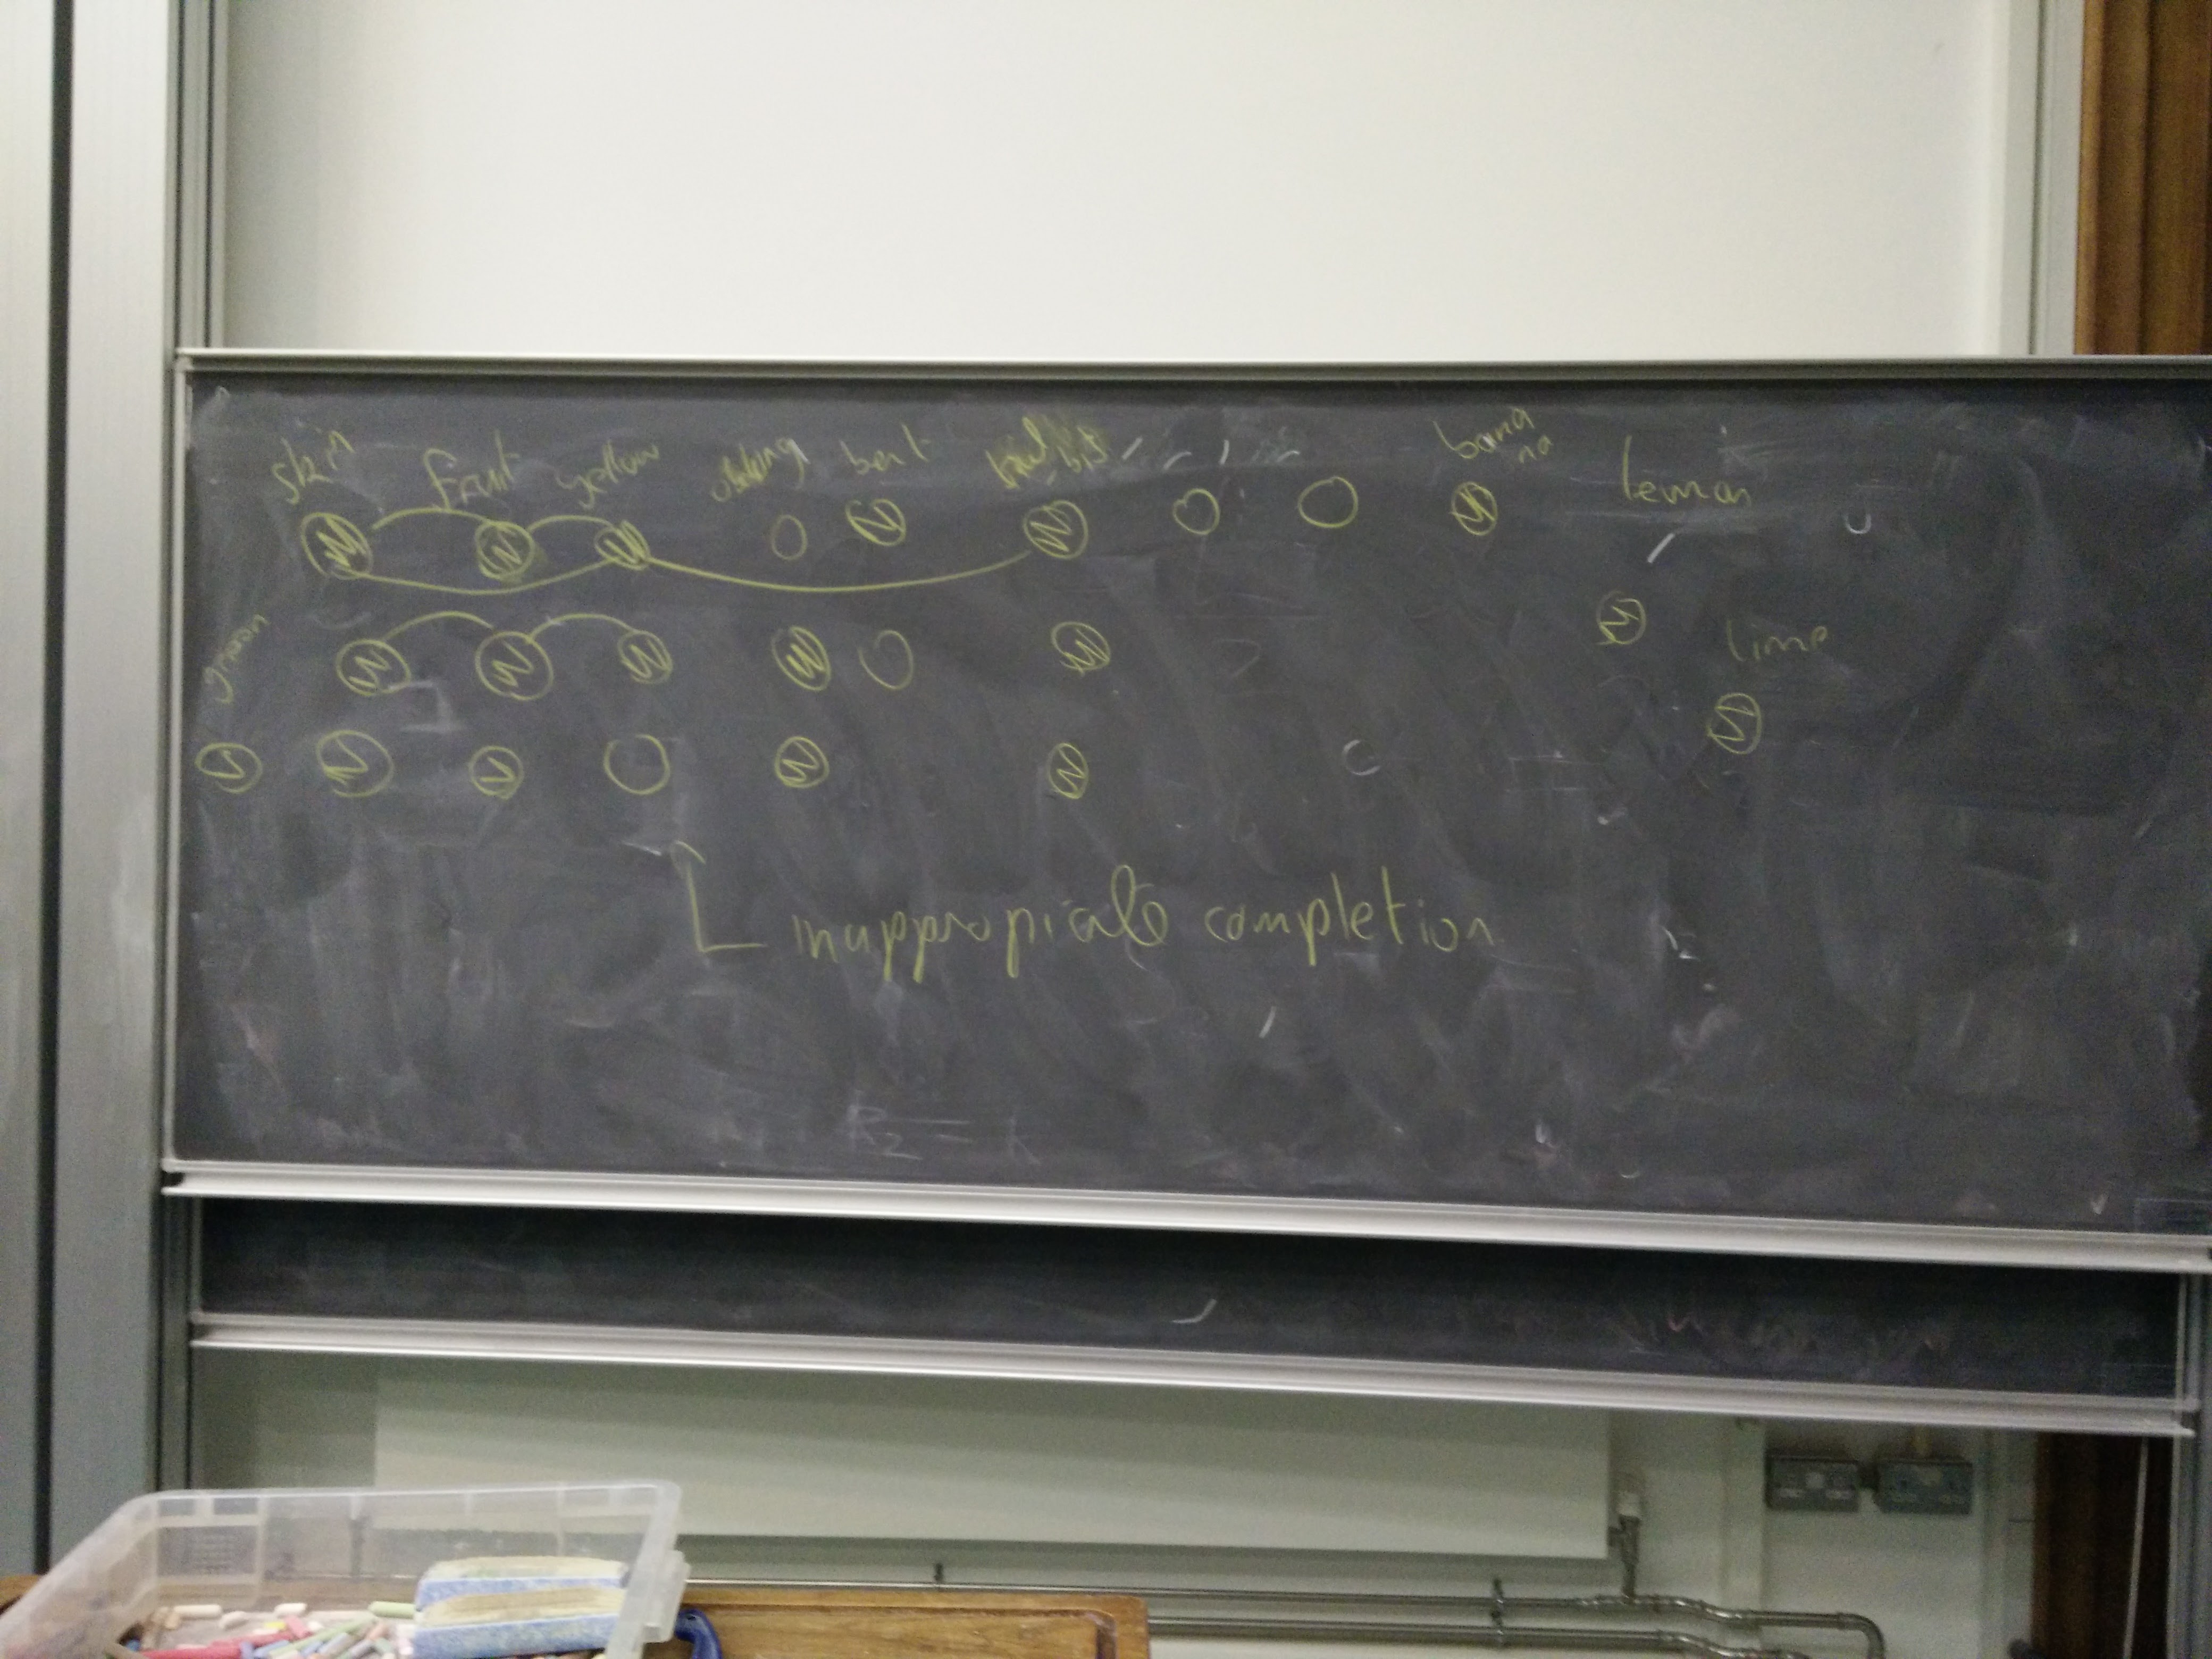 skin fruit yellow oblong bent banana lemon
green lime
inappropiate completion
R₂ =